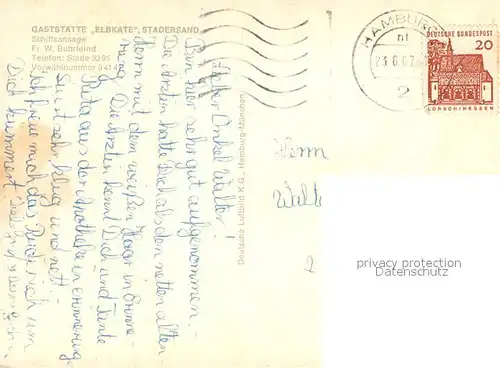 GASTSTÄTTE „ELBKATE", STADERSAND
Schiffsansage
Fr. W. Buhrfeind
Telefon: Stade 3395
Vorwählnummer 04141
Deutsche Luftbild K.G., Hamburg-München
HAMBURG
23.6.67
2
DEUTSCHE BUNDESPOST
20
LORSCH/HESSEN
Herrn
Walt
Onkel Walter!
Bin hier sehr gut aufgenommen.
Die Ärztin hatte Dich als den netten alten
Herrn mit dem weißen Haar in Erinne-
rung. Die Ärztin kennt Dich und Tante
Ruta aus der Apotheke in Erinnerung
Sie ist sehr klug und nett.
Ich freue mich das Rudi sich um
Dich kümmert.
privacy protection
Datenschutz